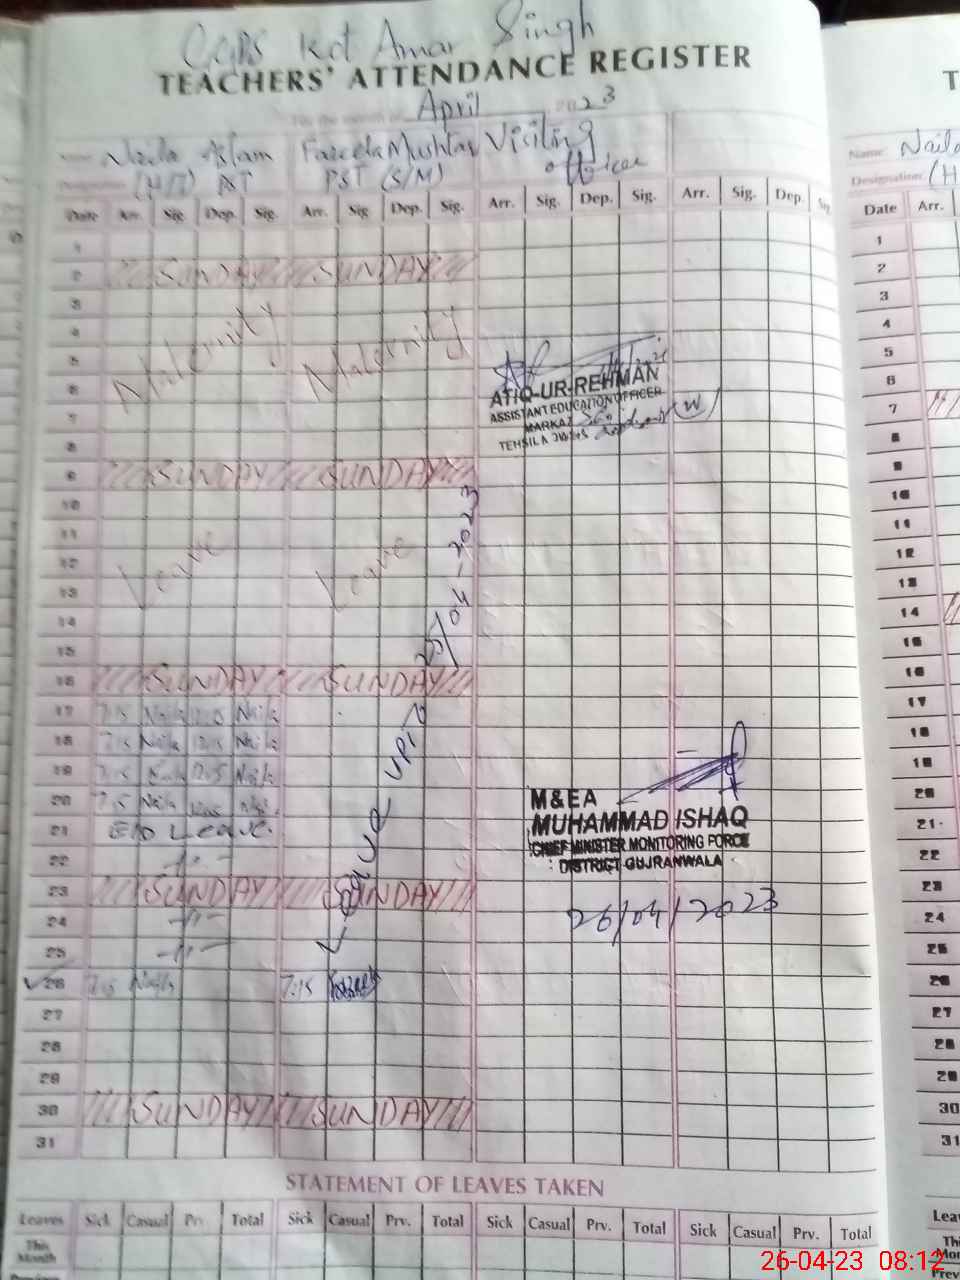 GGPS Kot Amar Singh
TEACHERS' ATTENDANCE REGISTER
For the month of April 2023
Name Naila Aslam Faseela Mushtaq Visiting
Designation (H/T) PST PST (S/M) officer
Date Arr. Sig. Dep. Sig. Arr. Sig Dep. Sig. Arr. Sig. Dep. Sig. Arr. Sig. Dep. Sig
1
2 SUNDAY SUNDAY
3
4 Maternity Maternity
5
6
7
8
9 SUNDAY SUNDAY
10
11
12 Leave Leave
13
14
15
16 SUNDAY SUNDAY
17 7:15 Naila 12:15 Naila
18 7:15 Naila 12:15 Naila
19 7:15 Naila 12:15 Naila
20 7:15 Naila Naila
21 EID Leave.
22 -//-
23 SUNDAY SUNDAY
24 -//-
25 -//-
26 7:15 Naila 7:15
27
28
29
30 SUNDAY SUNDAY
31
Leave upto 25/04-2023
ATIQ-UR-REHMAN
ASSISTANT EDUCATION OFFICER
MARKAZ
TEHSIL
M&EA
MUHAMMAD ISHAQ
CHIEF MINISTER MONITORING FORCE
DISTRICT GUJRANWALA
26/04/2023
STATEMENT OF LEAVES TAKEN
Leaves Sick Casual Prv. Total Sick Casual Prv. Total Sick Casual Prv. Total Sick Casual Prv. Total
This
Month
Previous
T
Name: Naila
Designation: (H
Date Arr.
1
2
3
4
5
6
7
8
9
10
11
12
13
14
15
16
17
18
19
20
21
22
23
24
25
26
27
28
29
30
31
Lea
Thi
Mo
Prev
26-04-23 08:12